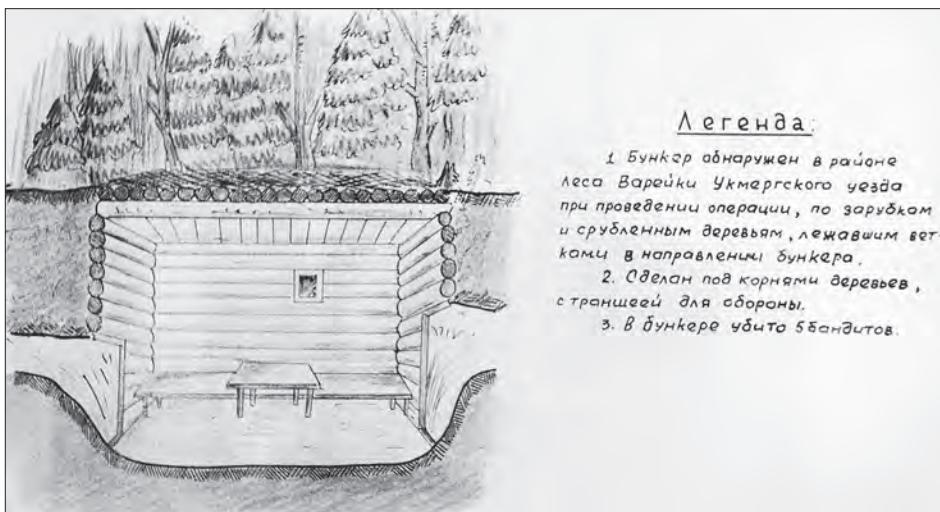 Легенда:
1 Бункер обнаружен в районе
леса Варейки Укмергского уезда
при проведении операции, по зарубкам
и срубленным деревьям, лежавшим вет-
ками в направлении бункера.
2. Сделан под корнями деревьев,
с траншеей для обороны.
3. В бункере убито 5 бандитов.